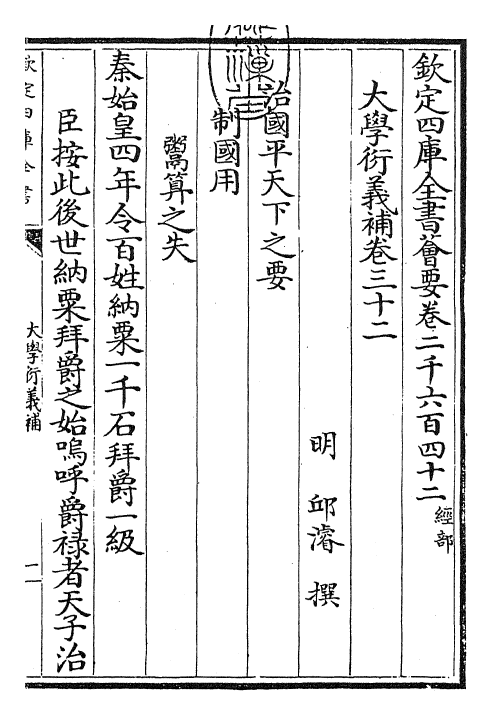 欽定四庫全書薈要卷二千六百四十二 經部
大學衍義補卷三十二
明 邱濬 撰
治國平天下之要
制國用
鬻算之失
秦始皇四年令百姓納粟一千石拜爵一級
臣按此後世納粟拜爵之始嗚呼爵祿者天子治
欽定四庫全書
大學衍義補
一